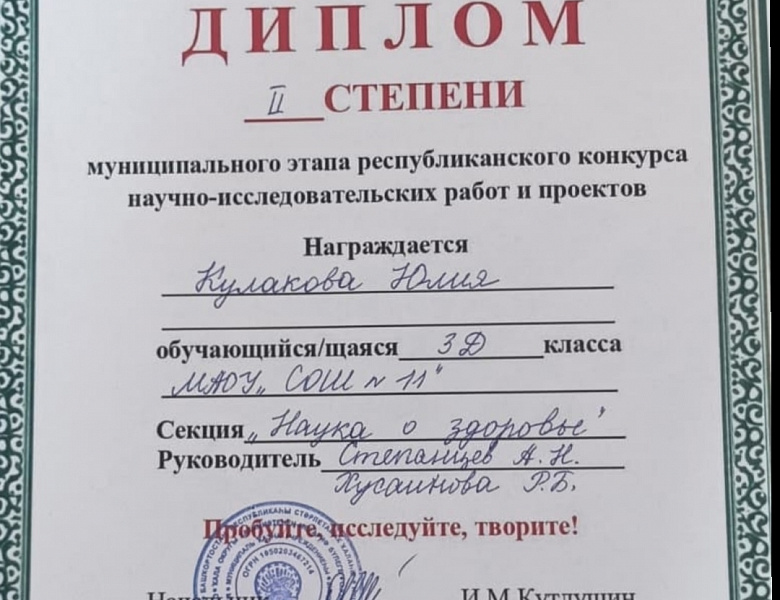 ДИПЛОМ
II СТЕПЕНИ
муниципального этапа республиканского конкурса
научно-исследовательских работ и проектов
Награждается
Кулакова Юлия
обучающийся/щаяся 3Д класса
МАОУ „СОШ № 11"
Секция „Наука о здоровье"
Руководитель Степанцев А.Н.
Хусаинова Р.Б.
Пробуйте, исследуйте, творите!
И.М.Кутлушин